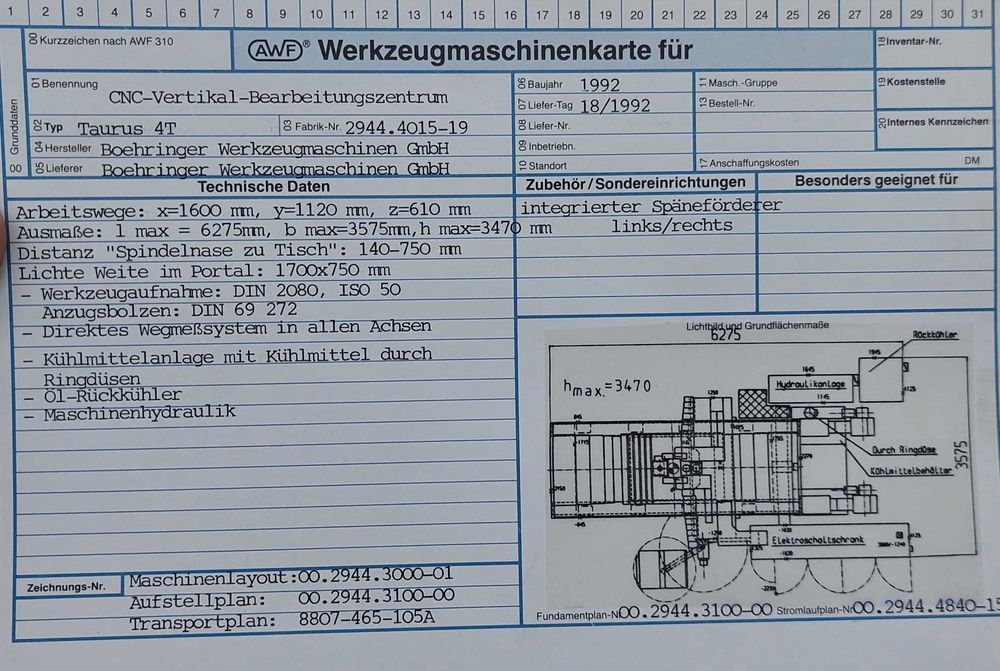 1 2 3 4 5 6 7 8 9 10 11 12 13 14 15 16 17 18 19 20 21 22 23 24 25 26 27 28 29 30 31
00 Kurzzeichen nach AWF 310
AWF® Werkzeugmaschinenkarte für
18 Inventar-Nr.
00 Grunddaten
01 Benennung
CNC-Vertikal-Bearbeitungszentrum
06 Baujahr 1992
11 Masch.-Gruppe
19 Kostenstelle
07 Liefer-Tag 18/1992
13 Bestell-Nr.
02 Typ Taurus 4T
03 Fabrik-Nr. 2944.4015-19
08 Liefer-Nr.
20 Internes Kennzeichen
04 Hersteller Boehringer Werkzeugmaschinen GmbH
09 Inbetriebn.
05 Lieferer Boehringer Werkzeugmaschinen GmbH
10 Standort
17 Anschaffungskosten DM
Technische Daten
Arbeitswege: x=1600 mm, y=1120 mm, z=610 mm
Ausmaße: l max = 6275mm, b max=3575mm,h max=3470 mm
Distanz "Spindelnase zu Tisch": 140-750 mm
Lichte Weite im Portal: 1700x750 mm
- Werkzeugaufnahme: DIN 2080, ISO 50
Anzugsbolzen: DIN 69 272
- Direktes Wegmeßsystem in allen Achsen
- Kühlmittelanlage mit Kühlmittel durch
Ringdüsen
- Öl-Rückkühler
- Maschinenhydraulik
Zubehör/Sondereinrichtungen
integrierter Späneförderer
links/rechts
Besonders geeignet für
Lichtbild und Grundflächenmaße
6275
Rückkühler
1945
hmax.=3470
1645
Hydraulikanlage
1145
4125
1250
Durch Ringdüse
Kühlmittelbehälter
3575
Elektroschaltschrank
Zeichnungs-Nr.
Maschinenlayout:00.2944.3000-01
Aufstellplan: 00.2944.3100-00
Transportplan: 8807-465-105A
Fundamentplan-Nr 00.2944.3100-00 Stromlaufplan-Nr 00.2944.4840-15